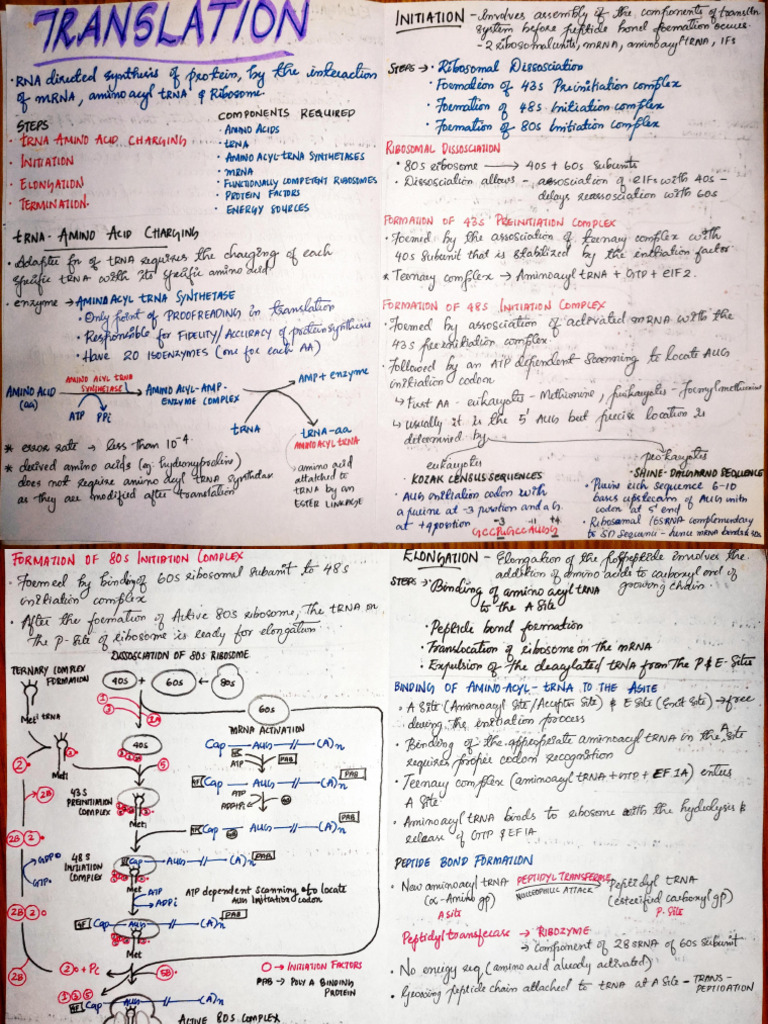 TRANSLATION
• RNA directed synthesis of protein, by the interaction
of mRNA, aminoacyl tRNA & Ribosome.
STEPS
• tRNA AMINO ACID CHARGING
• INITIATION
• ELONGATION
• TERMINATION.
COMPONENTS REQUIRED
• AMINO ACIDS
• tRNA
• AMINO ACYL-tRNA SYNTHETASES
• mRNA
• FUNCTIONALLY COMPETENT RIBOSOMES
• PROTEIN FACTORS
• ENERGY SOURCES
tRNA - AMINO ACID CHARGING
• Adapter fn of tRNA requires the charging of each
specific tRNA with its specific amino acid
• enzyme → AMINOACYL tRNA SYNTHETASE
• Only point of PROOFREADING in translation
• Responsible for FIDELITY/ACCURACY of protein synthesis
• Have 20 ISOENZYMES (one for each AA)
AMINO ACID
(aa)
AMINO ACYL tRNA
SYNTHETASE
ATP PPi
AMINO ACYL-AMP-
ENZYME COMPLEX
AMP + enzyme
tRNA
tRNA-aa
AMINOACYL tRNA
amino acid
attached to
tRNA by an
ESTER LINKAGE
* error rate → less than 10⁻⁴
* derived amino acids (eg: hydroxyproline)
does not require amino acyl tRNA synthetase
as they are modified after translation
INITIATION - Involves assembly of the components of transltn
system before peptide bond formation occurs.
- 2 ribosomal units, mRNA, aminoacyl tRNA, IFs
STEPS → • Ribosomal Dissociation
• Formation of 43s Preinitiation complex
• Formation of 48s Initiation complex
• Formation of 80s Initiation complex
RIBOSOMAL DISSOCIATION
• 80s ribosome → 40s + 60s subunits
- Dissociation allows - association of eIFs with 40s -
delays reassociation with 60s
FORMATION OF 43S PREINITIATION COMPLEX
• Formed by the association of ternary complex with
40s subunit that is stabilized by the initiation factor
* Ternary complex → Aminoacyl tRNA + GTP + eIF2.
FORMATION OF 48S INITIATION COMPLEX
• Formed by association of activated mRNA with the
43s preinitiation complex.
• Followed by an ATP dependent scanning to locate AUG
initiation codon
↳ First AA - eukaryotes - Methionine, prokaryotes - Formylmethionine
↳ usually it is the 5' AUG but precise location is
determined by
eukaryotes
• KOZAK CENSUS SEQUENCES
• AUG initiation codon with
a purine at -3 position and a G
at +4 position
-3 -1 +4
GCCPuGCCAUGG
prokaryotes
- SHINE-DALGARNO SEQUENCE
• Purine rich sequence 6-10
bases upstream of AUG
codon at 5' end
• Ribosomal 16SRNA complementary
to SD sequence - hence mRNA binds
FORMATION OF 80S INITIATION COMPLEX
• Formed by binding of 60s ribosomal subunit to 48s
initiation complex
• After the formation of Active 80s ribosome, The tRNA on
the P-site of ribosome is ready for elongation
DISSOCIATION OF 80S RIBOSOME
TERNARY COMPLEX
FORMATION
40s + 60s ← 80s
60s
Meti tRNA
mRNA ACTIVATION
40s
Cap — AUG —//— (A)n
ATP
PAB
Meti
43S
PREINITIATION
COMPLEX
Cap — AUG —//— (A)n
PAB
ATP
ADP+Pi
Meti
4F Cap — AUG —//— (A)n
PAB
48S
INITIATION
COMPLEX
Cap — AUG —//— (A)n
PAB
Met
GDP
GTP
ATP
ADPi
ATP dependent scanning of to locate
AUG initiation codon
4F Cap — AUG —//— (A)n
PAB
Met
2B
2 + Pi
5B
1 3 5
O → INITIATION FACTORS
PAB → POLY A BINDING
PROTEIN
4F Cap — AUG —//— (A)n
ACTIVE 80S COMPLEX
ELONGATION - Elongation of the polypeptide involves the
addition of amino acids to carboxyl end of
growing chain.
STEPS → • Binding of amino acyl tRNA
to the A site
• Peptide bond formation
• Translocation of ribosome on the mRNA
• Expulsion of the deacylated tRNA from The P & E-Sites
BINDING OF AMINO-ACYL-tRNA TO THE A SITE
• A Site (Aminoacyl Site/Acceptor Site) & E Site (Exit Site) → free
during the initiation process
• Binding of the appropriate aminoacyl tRNA in the A site
requires proper codon recognition
• Ternary complex (aminoacyl tRNA + GTP + EF 1A) enters
A site
• Aminoacyl tRNA binds to ribosome with the hydrolysis &
release of GTP & EF1A
PEPTIDE BOND FORMATION
• New aminoacyl tRNA
(α-Amino gp)
A site
PEPTIDYL TRANSFERASE
NUCLEOPHILIC ATTACK
Peptidyl tRNA
(esterified carboxyl gp)
P. Site
Peptidyl transferase → RIBOZYME
→ Component of 28SRNA of 60s subunit
• No energy req (amino acid already activated)
• Growing peptide chain attached to tRNA at A site - TRANS-
PEPTIDATION